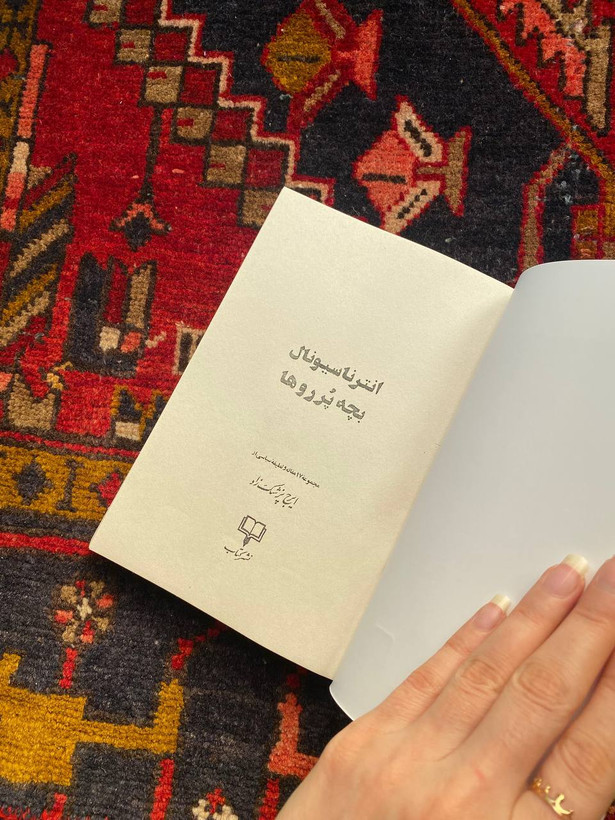 انترناسیونال
بچه پُرروها
مجموعه ۱۷ مقاله و لطیفه سیاسی از
ایرج پزشک‌زاد
نشر کتاب